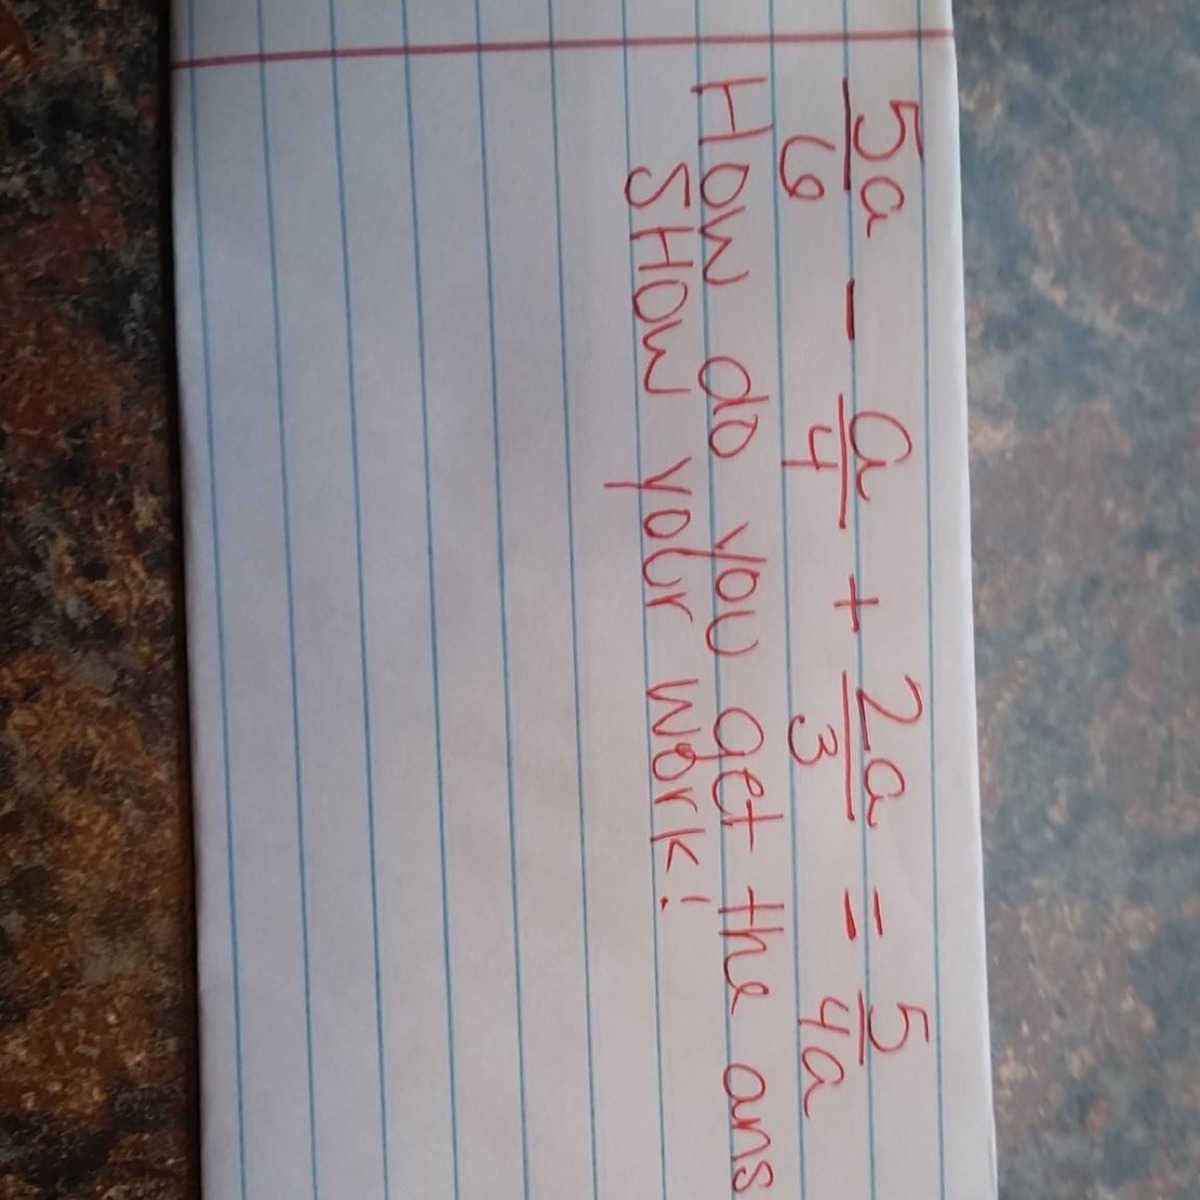 5a/6 - a/4 + 2a/3 = 5/4a
How do you get the ans
SHow your work!